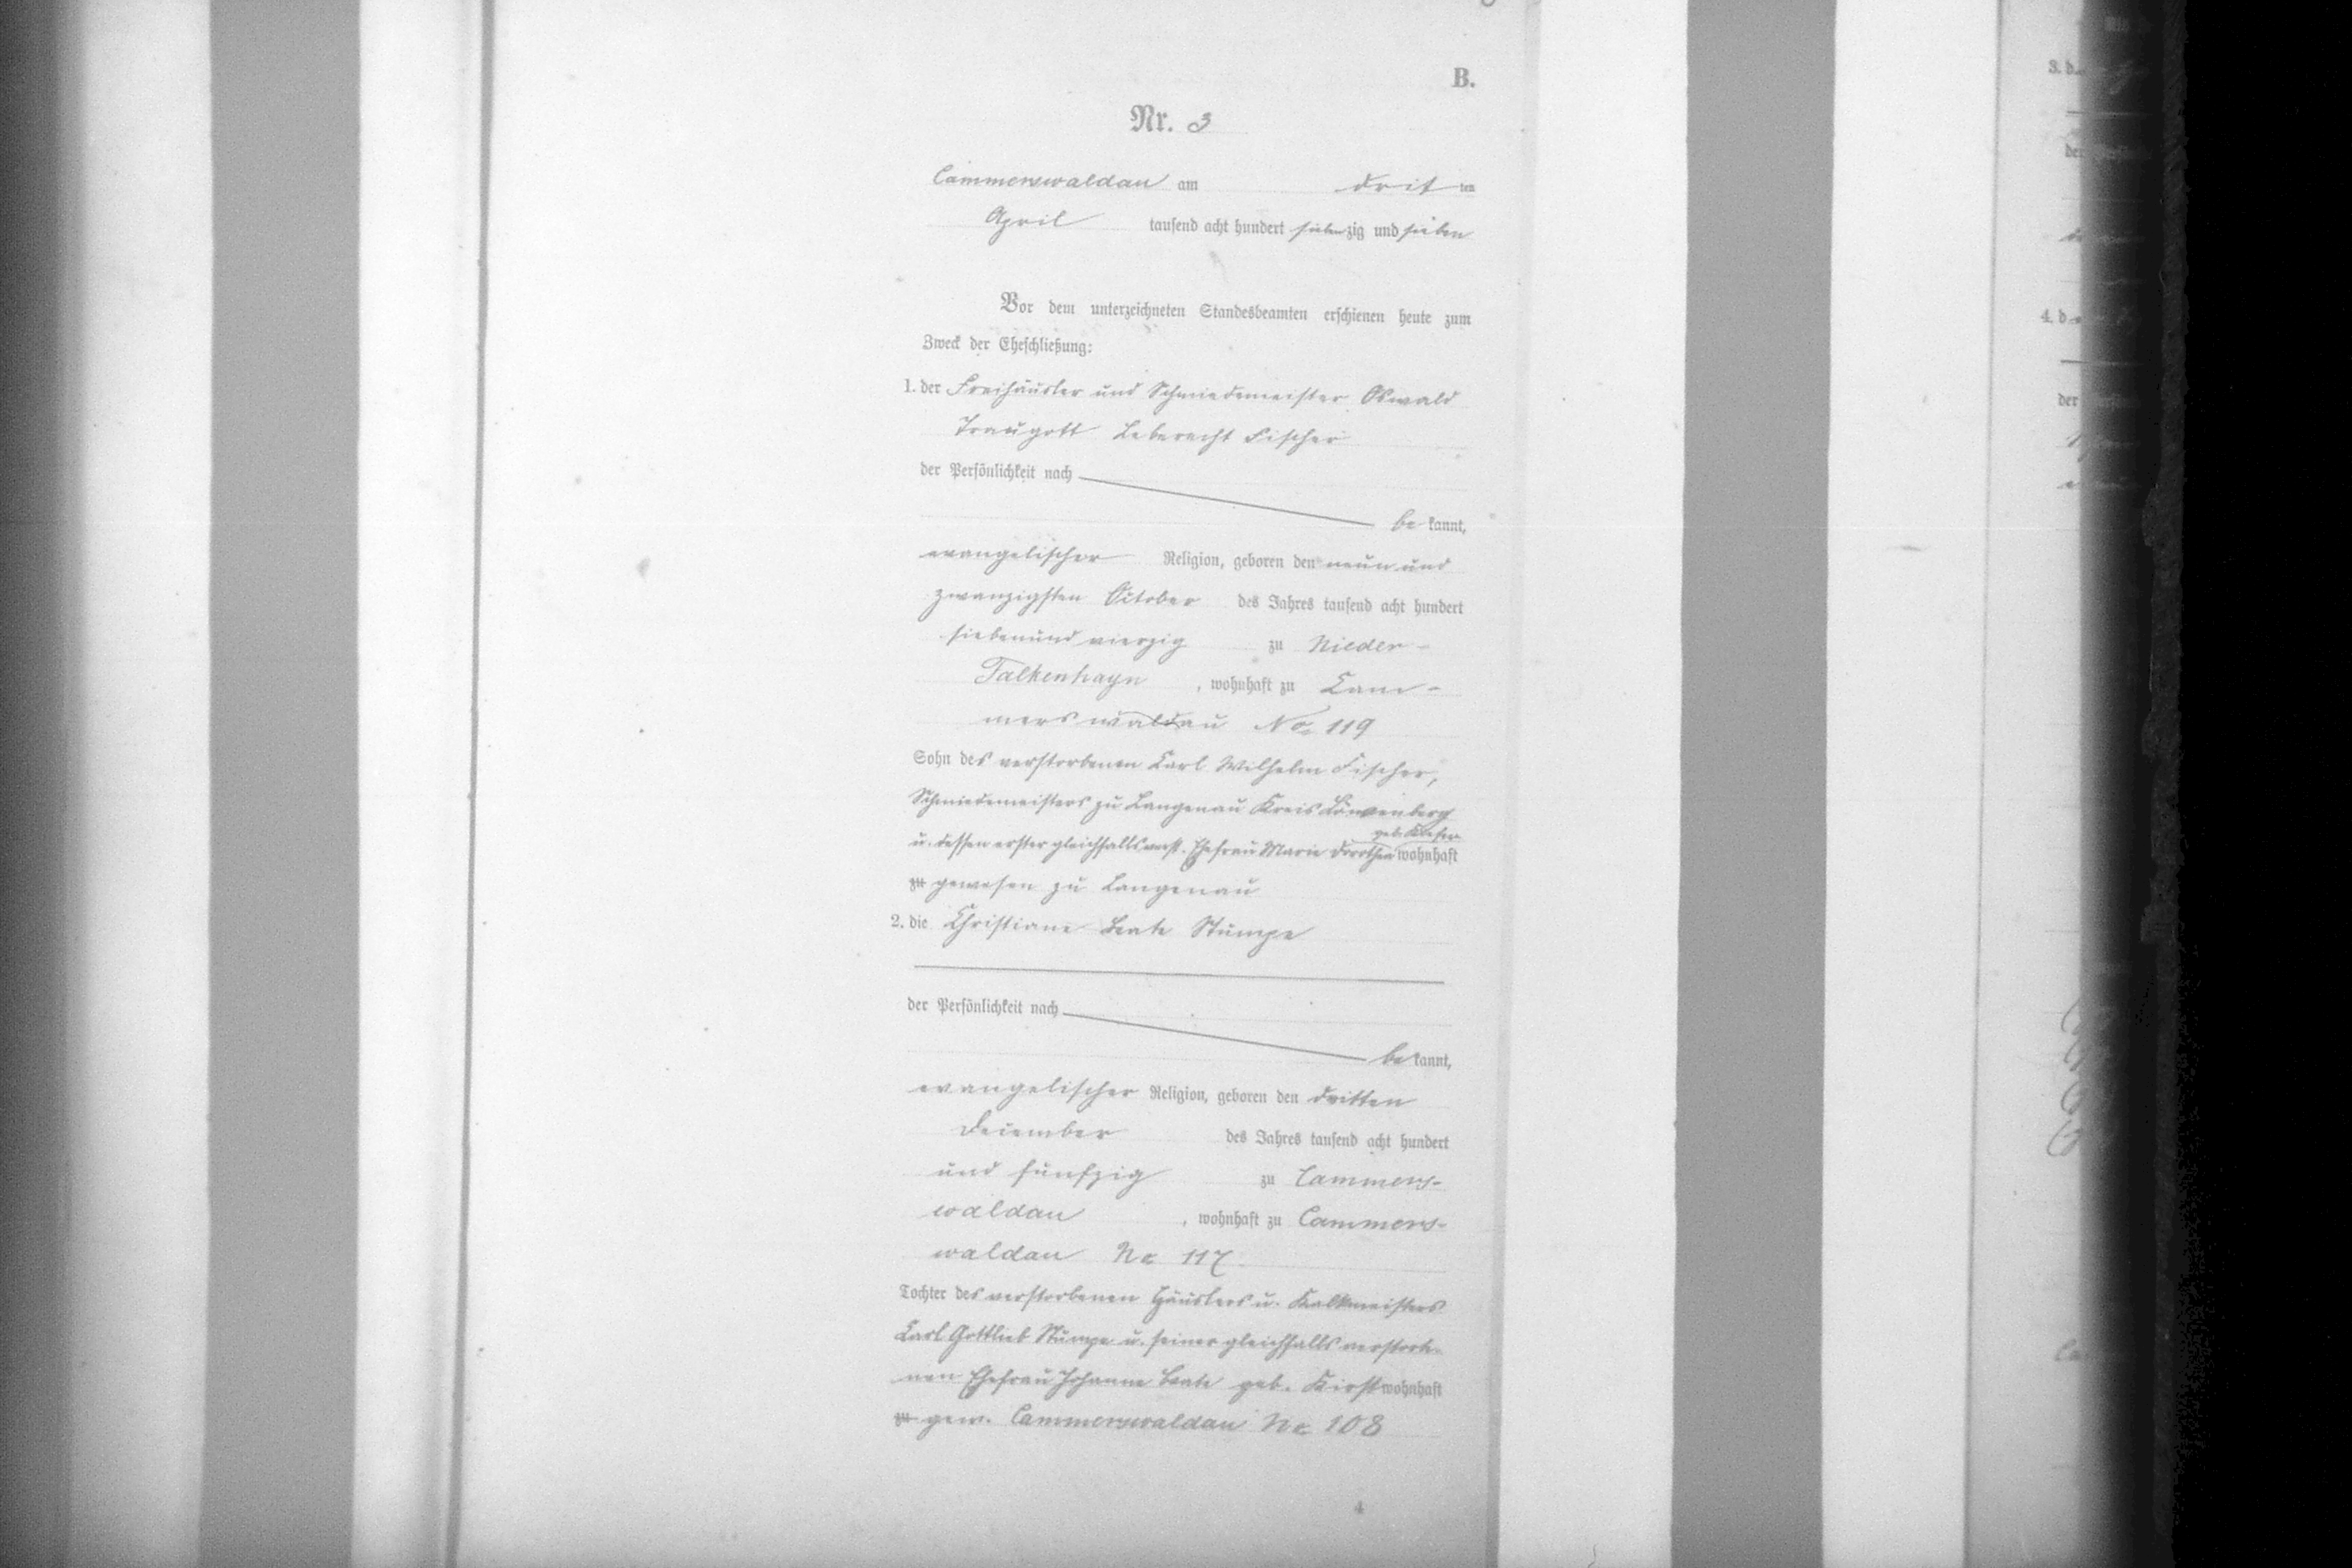 B.
Nr. 3
Cammerswaldau am drit ten
April tausend acht hundert siebenzig und sieben
Vor dem unterzeichneten Standesbeamten erschienen heute zum
Zweck der Eheschließung:
1. der Freihäusler und Schmiedemeister Oswald
Traugott Leberecht Fischer
der Persönlichkeit nach
be kannt,
evangelischer Religion, geboren den neun und
zwanzigsten October des Jahres tausend acht hundert
siebenund vierzig zu Nieder-
Falkenhayn, wohnhaft zu Cam-
merswaldau No. 119
Sohn des verstorbenen Carl Wilhelm Fischer,
Schmiedemeisters zu Langenau Kreis Löwenberg
geb.
u. dessen erster gleichfalls verst. Ehefrau Marie Dorothea wohnhaft
zu gewesen zu Langenau
2. die Christiane Beate Stumpe
der Persönlichkeit nach
be kannt,
evangelischer Religion, geboren den dritten
December des Jahres tausend acht hundert
und fünfzig zu Cammers-
waldau, wohnhaft zu Cammers-
waldau No 117.
Tochter des verstorbenen Häuslers u. Kalkmeisters
Carl Gottlieb Stumpe u. seiner gleichfalls verstorbe-
nen Ehefrau Johanne Beate geb. Kirst wohnhaft
zu gew. Cammerswaldau No 108
4
3. d
der
4. d
der